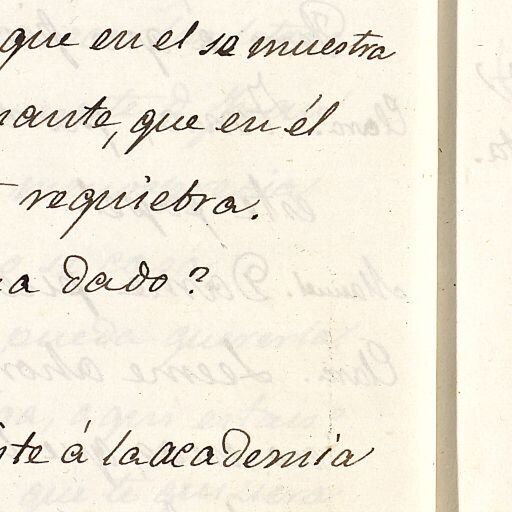 que en el se muestra
nante, que en él
requiebra.
a dado?
ste á la academia